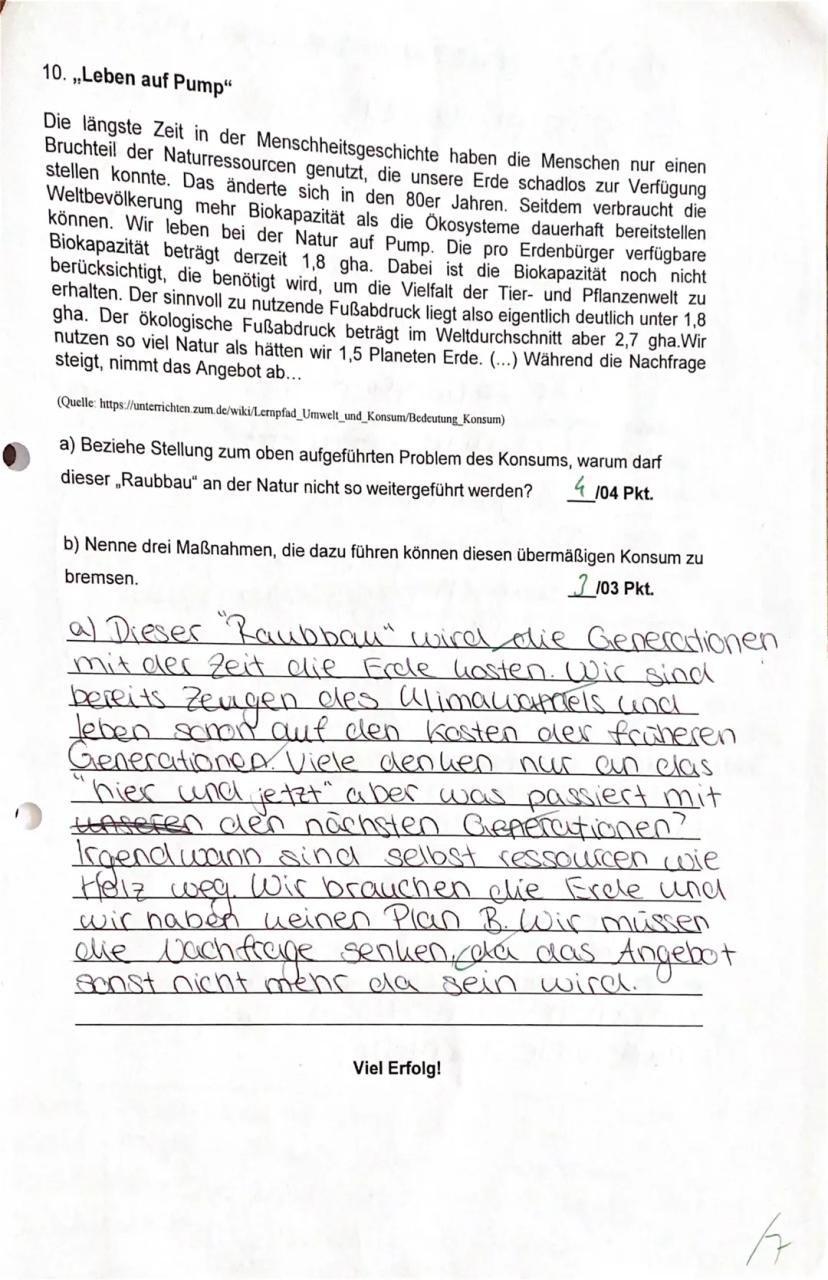 10. „Leben auf Pump“
Die längste Zeit in der Menschheitsgeschichte haben die Menschen nur einen
Bruchteil der Naturressourcen genutzt, die unsere Erde schadlos zur Verfügung
stellen konnte. Das änderte sich in den 80er Jahren. Seitdem verbraucht die
Weltbevölkerung mehr Biokapazität als die Ökosysteme dauerhaft bereitstellen
können. Wir leben bei der Natur auf Pump. Die pro Erdenbürger verfügbare
Biokapazität beträgt derzeit 1,8 gha. Dabei ist die Biokapazität noch nicht
berücksichtigt, die benötigt wird, um die Vielfalt der Tier- und Pflanzenwelt zu
erhalten. Der sinnvoll zu nutzende Fußabdruck liegt also eigentlich deutlich unter 1,8
gha. Der ökologische Fußabdruck beträgt im Weltdurchschnitt aber 2,7 gha.Wir
nutzen so viel Natur als hätten wir 1,5 Planeten Erde. (...) Während die Nachfrage
steigt, nimmt das Angebot ab...
(Quelle: https://unterrichten.zum.de/wiki/Lernpfad_Umwelt_und_Konsum/Bedeutung_Konsum)
a) Beziehe Stellung zum oben aufgeführten Problem des Konsums, warum darf
dieser „Raubbau“ an der Natur nicht so weitergeführt werden? 4 /04 Pkt.
b) Nenne drei Maßnahmen, die dazu führen können diesen übermäßigen Konsum zu
bremsen. 3 /03 Pkt.
a) Dieser "Raubbau" wird die Generationen
mit der Zeit die Erde kosten. Wir sind
bereits Zeugen des Klimawandels und
leben schon auf den Kosten der früheren
Generationen. Viele denken nur an das
"hier und jetzt" aber was passiert mit
unseren den nächsten Generationen?
Irgendwann sind selbst ressourcen wie
Holz weg. Wir brauchen die Erde und
wir haben keinen Plan B. Wir müssen
die Nachfrage senken, da das Angebot
sonst nicht mehr da sein wird.
Viel Erfolg!
/7